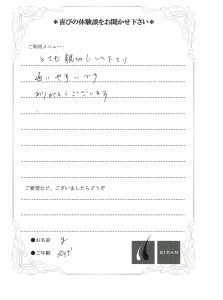 ＊喜びの体験談をお聞かせ下さい＊
ご利用メニュー：
とても親切で
通いやすいです
ありがとうございます
ご要望など、ございましたらどうぞ
●お名前 y
●ご年齢
BIDAN